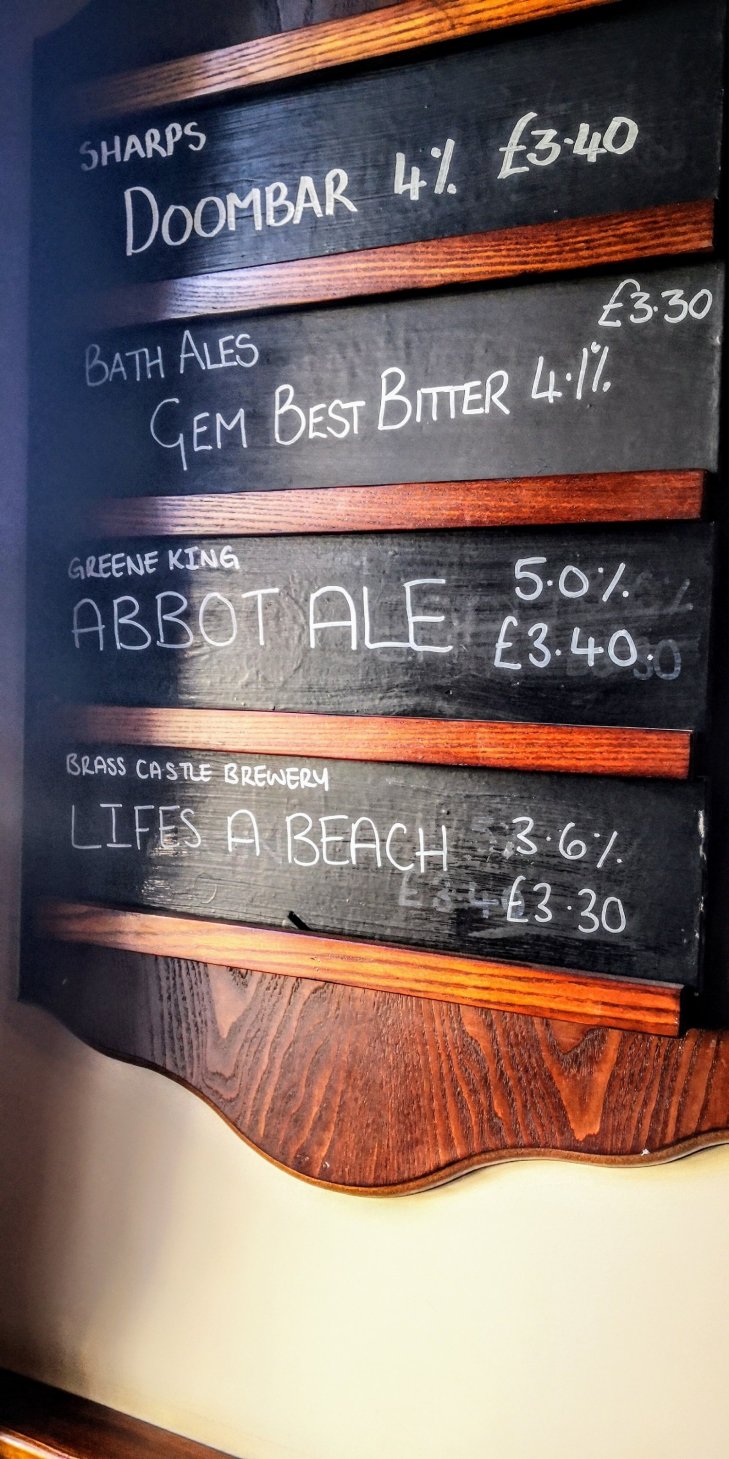 SHARPS
DOOMBAR 4% £3.40
£3.30
BATH ALES
GEM BEST BITTER 4.1%
GREENE KING
ABBOT ALE 5.0%
£3.40
BRASS CASTLE BREWERY
LIFES A BEACH 3.6%
£3.30